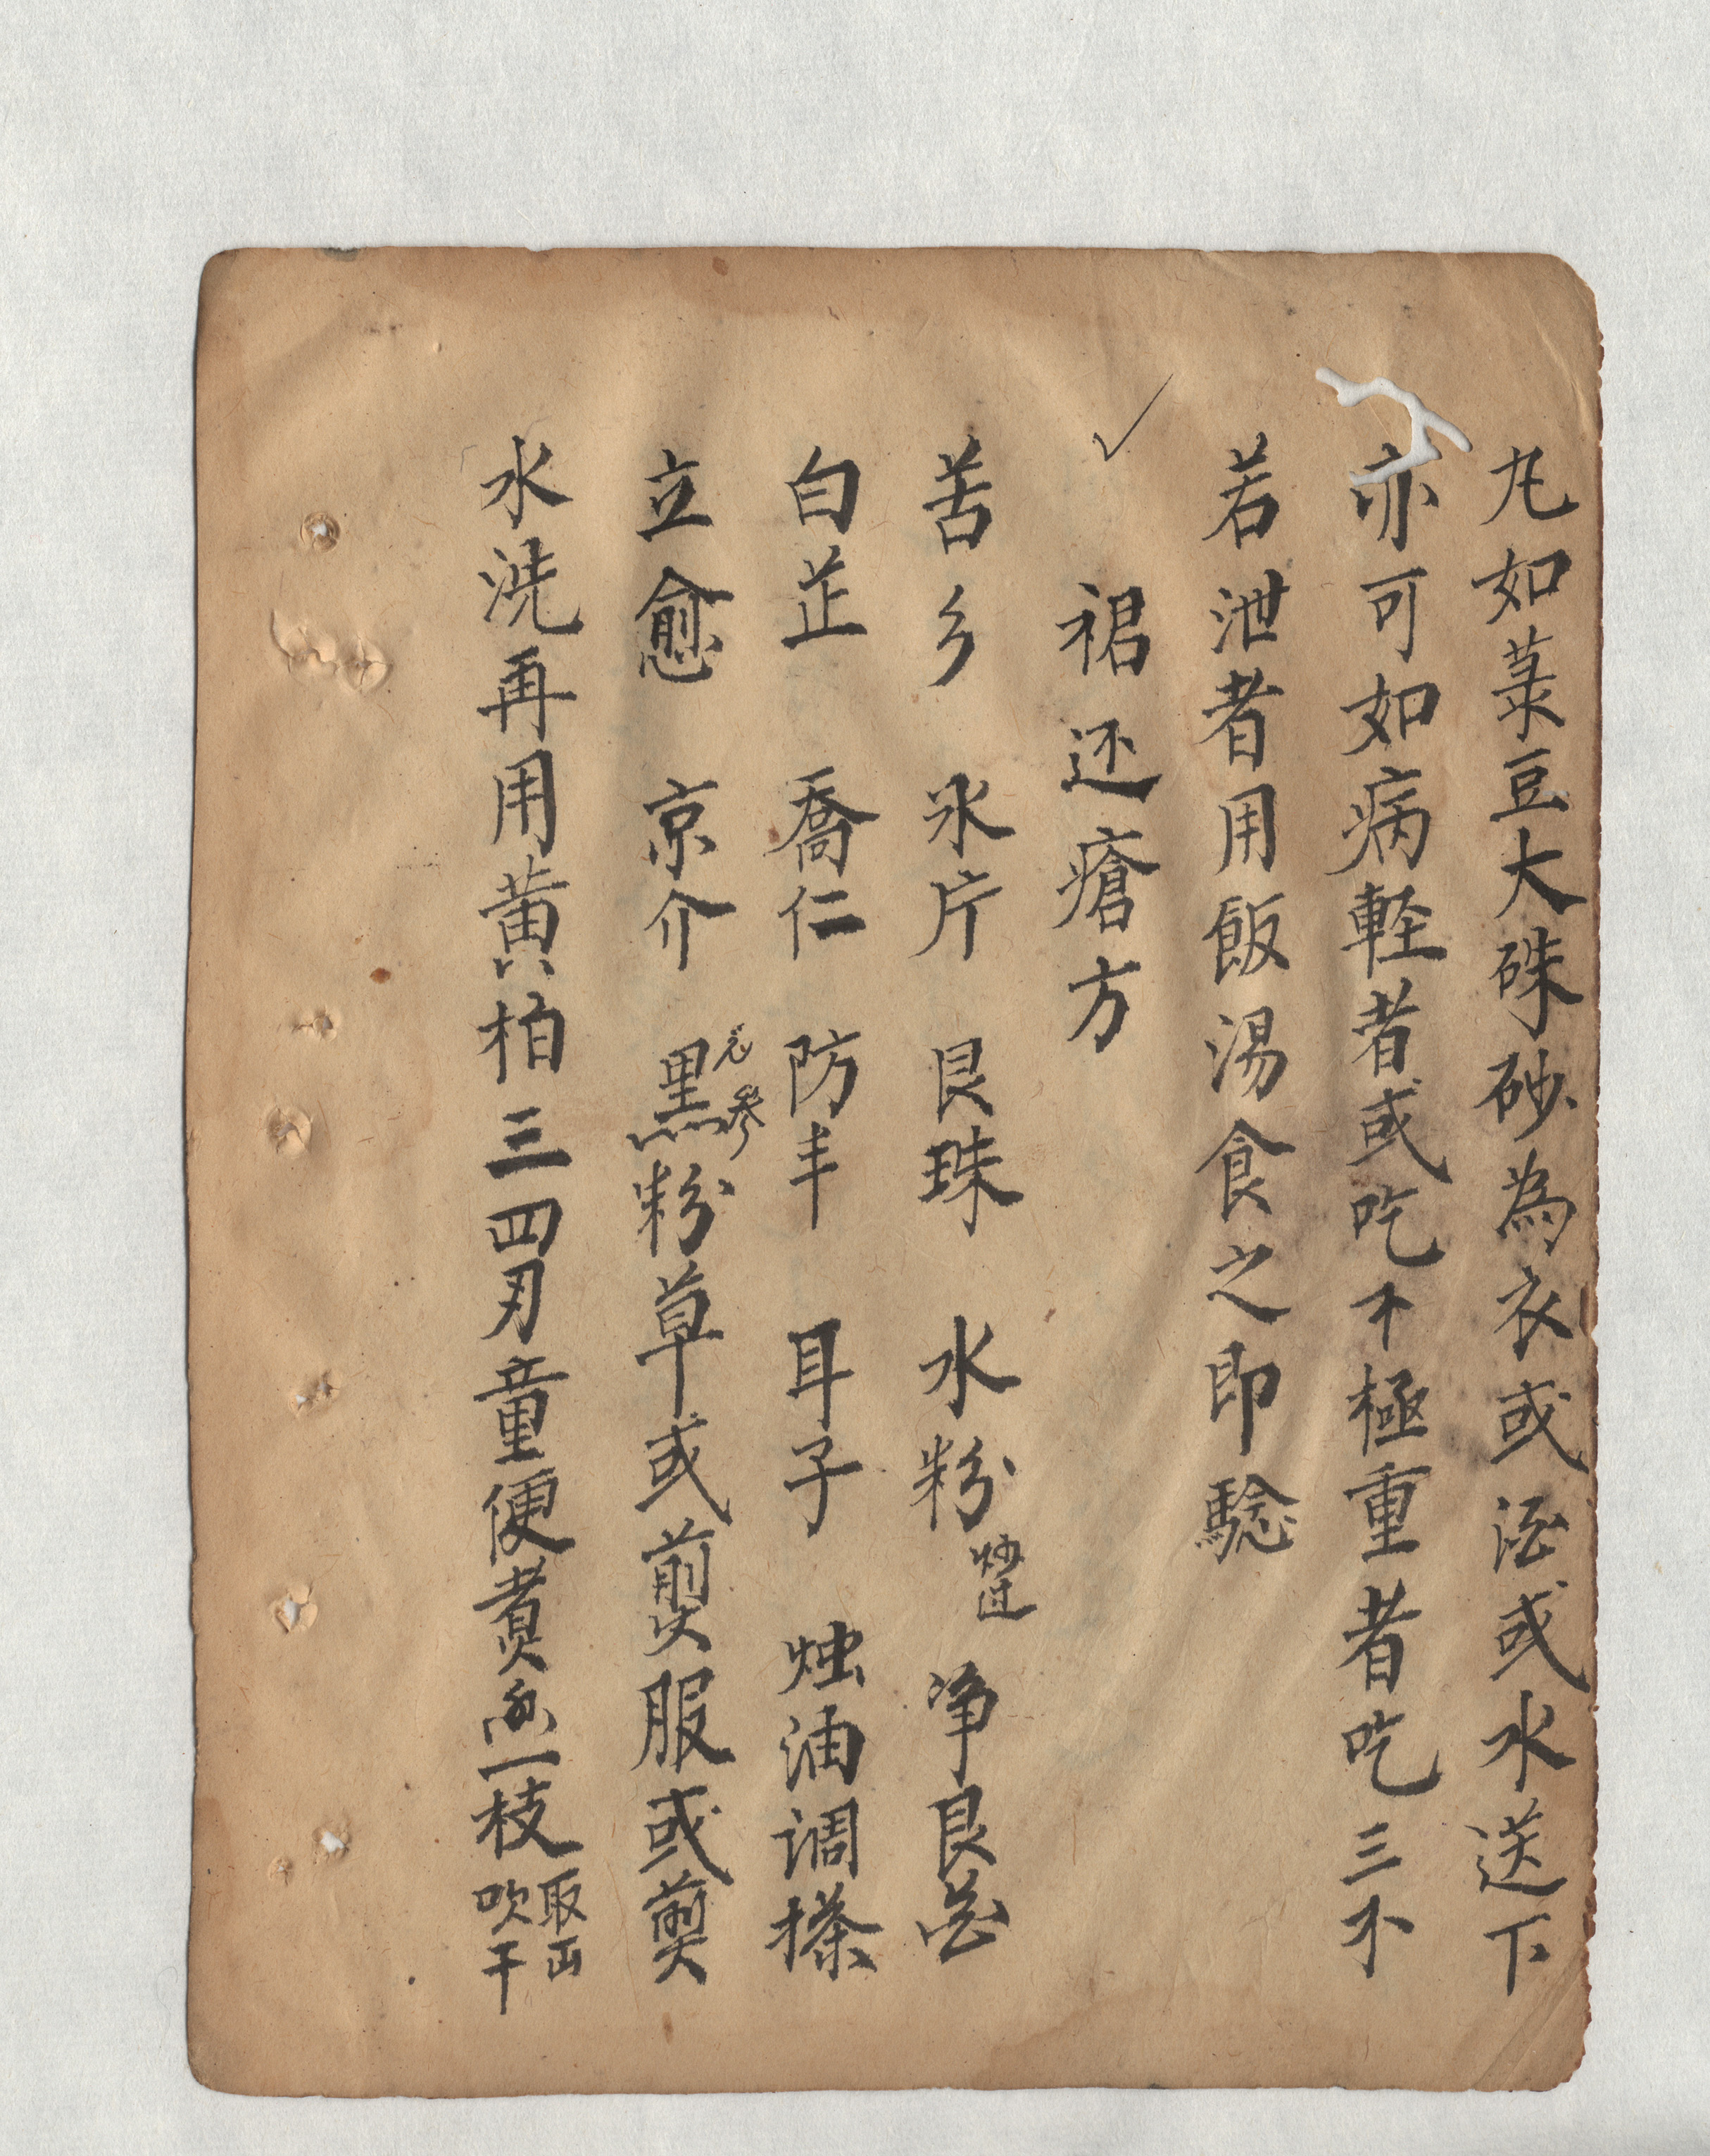 丸如菉豆大硃砂為衣或酒或水送下
亦可如病軽者或吃不極重者吃三不
若泄者用飯湯食之即騐
裙还瘡方
苦乡 氷片 艮珠 水粉 炒过 净艮
白芷 喬仁 防丰 耳子 烛油调搽
立愈 京介 黑 参 粉草或煎服或煎
水洗再用黄柏三四刃童便煮 一枝 取出
吹干